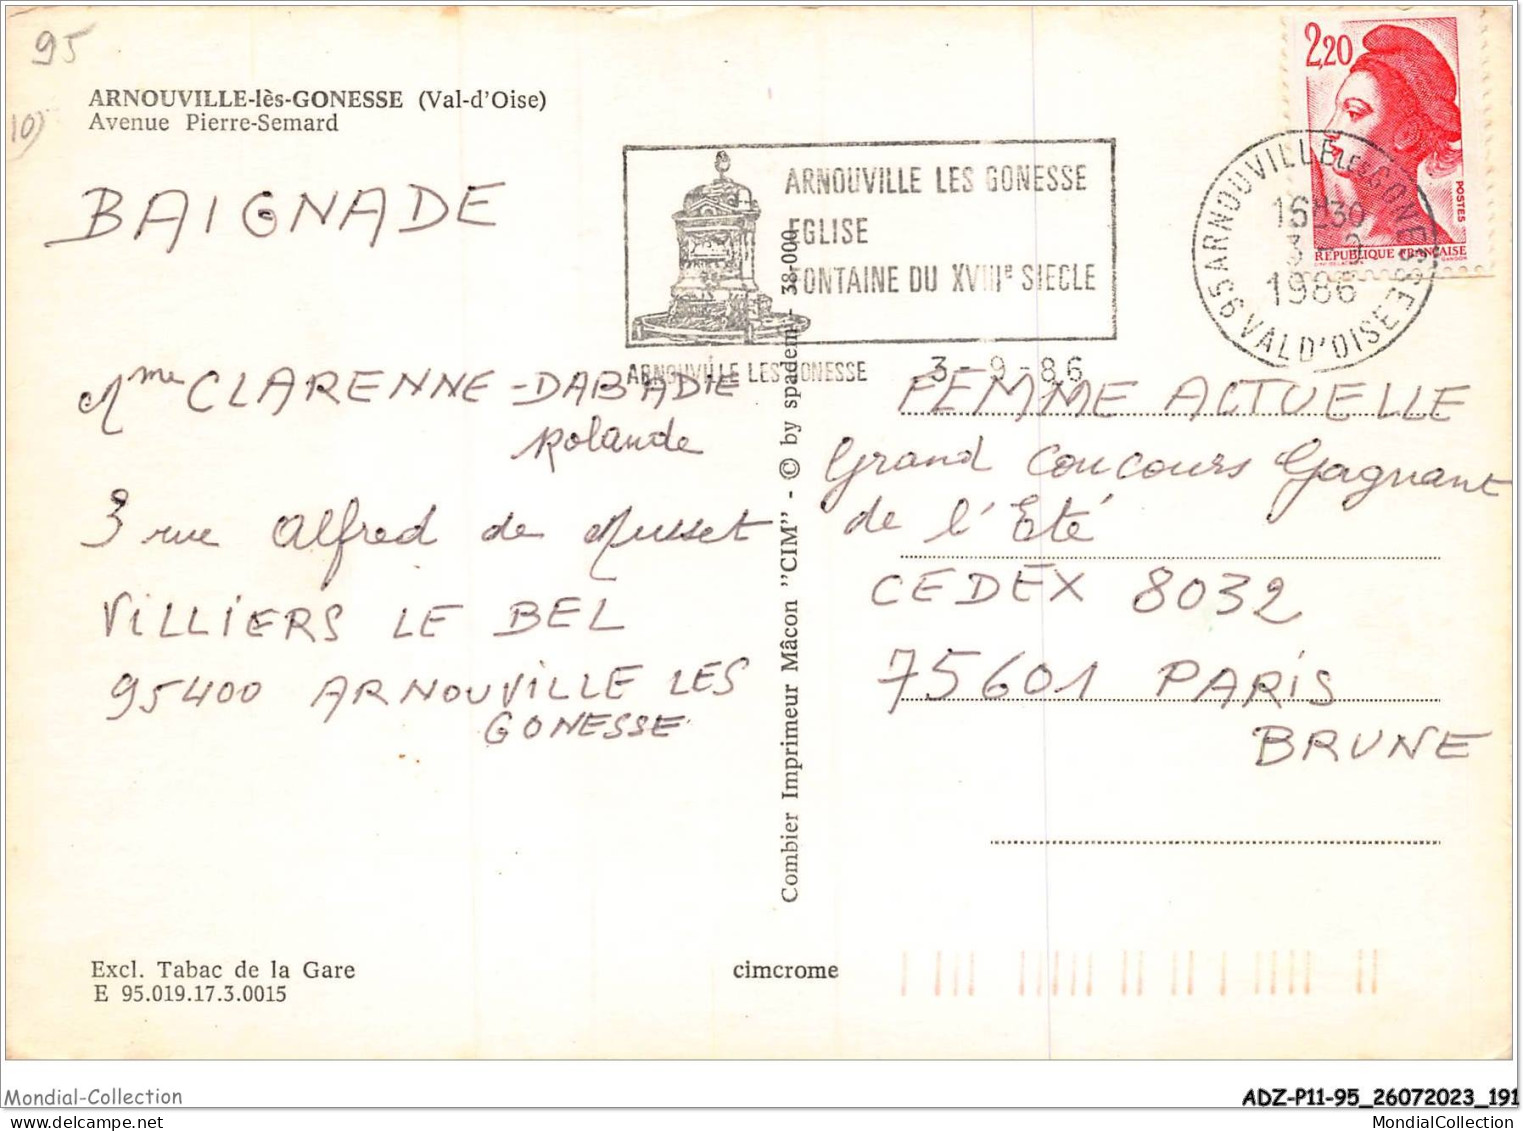 95
10)
ARNOUVILLE-lès-GONESSE (Val-d'Oise)
Avenue Pierre-Semard
BAIGNADE
Mme CLARENNE-DABADIE
Rolande
3 rue Alfred de Musset
VILLIERS LE BEL
95400 ARNOUVILLE LES
GONESSE
Excl. Tabac de la Gare
E 95.019.17.3.0015
ARNOUVILLE LES GONESSE
EGLISE
FONTAINE DU XVIIIe SIECLE
ARNOUVILLE LES GONESSE 3-9-86
Combier Imprimeur Mâcon "CIM" - © by spadem - 38-000
cimcrome
2,20
POSTES
RÉPUBLIQUE FRANÇAISE
95 ARNOUVILLE LES GONESSE
16H30
3-9
1986
VAL D'OISE
FEMME ACTUELLE
Grand Concours Gagnant
de l'Eté
CEDEX 8032
75601 PARIS
BRUNE
Mondial-Collection
ADZ-P11-95_26072023_191
MondialCollection.com